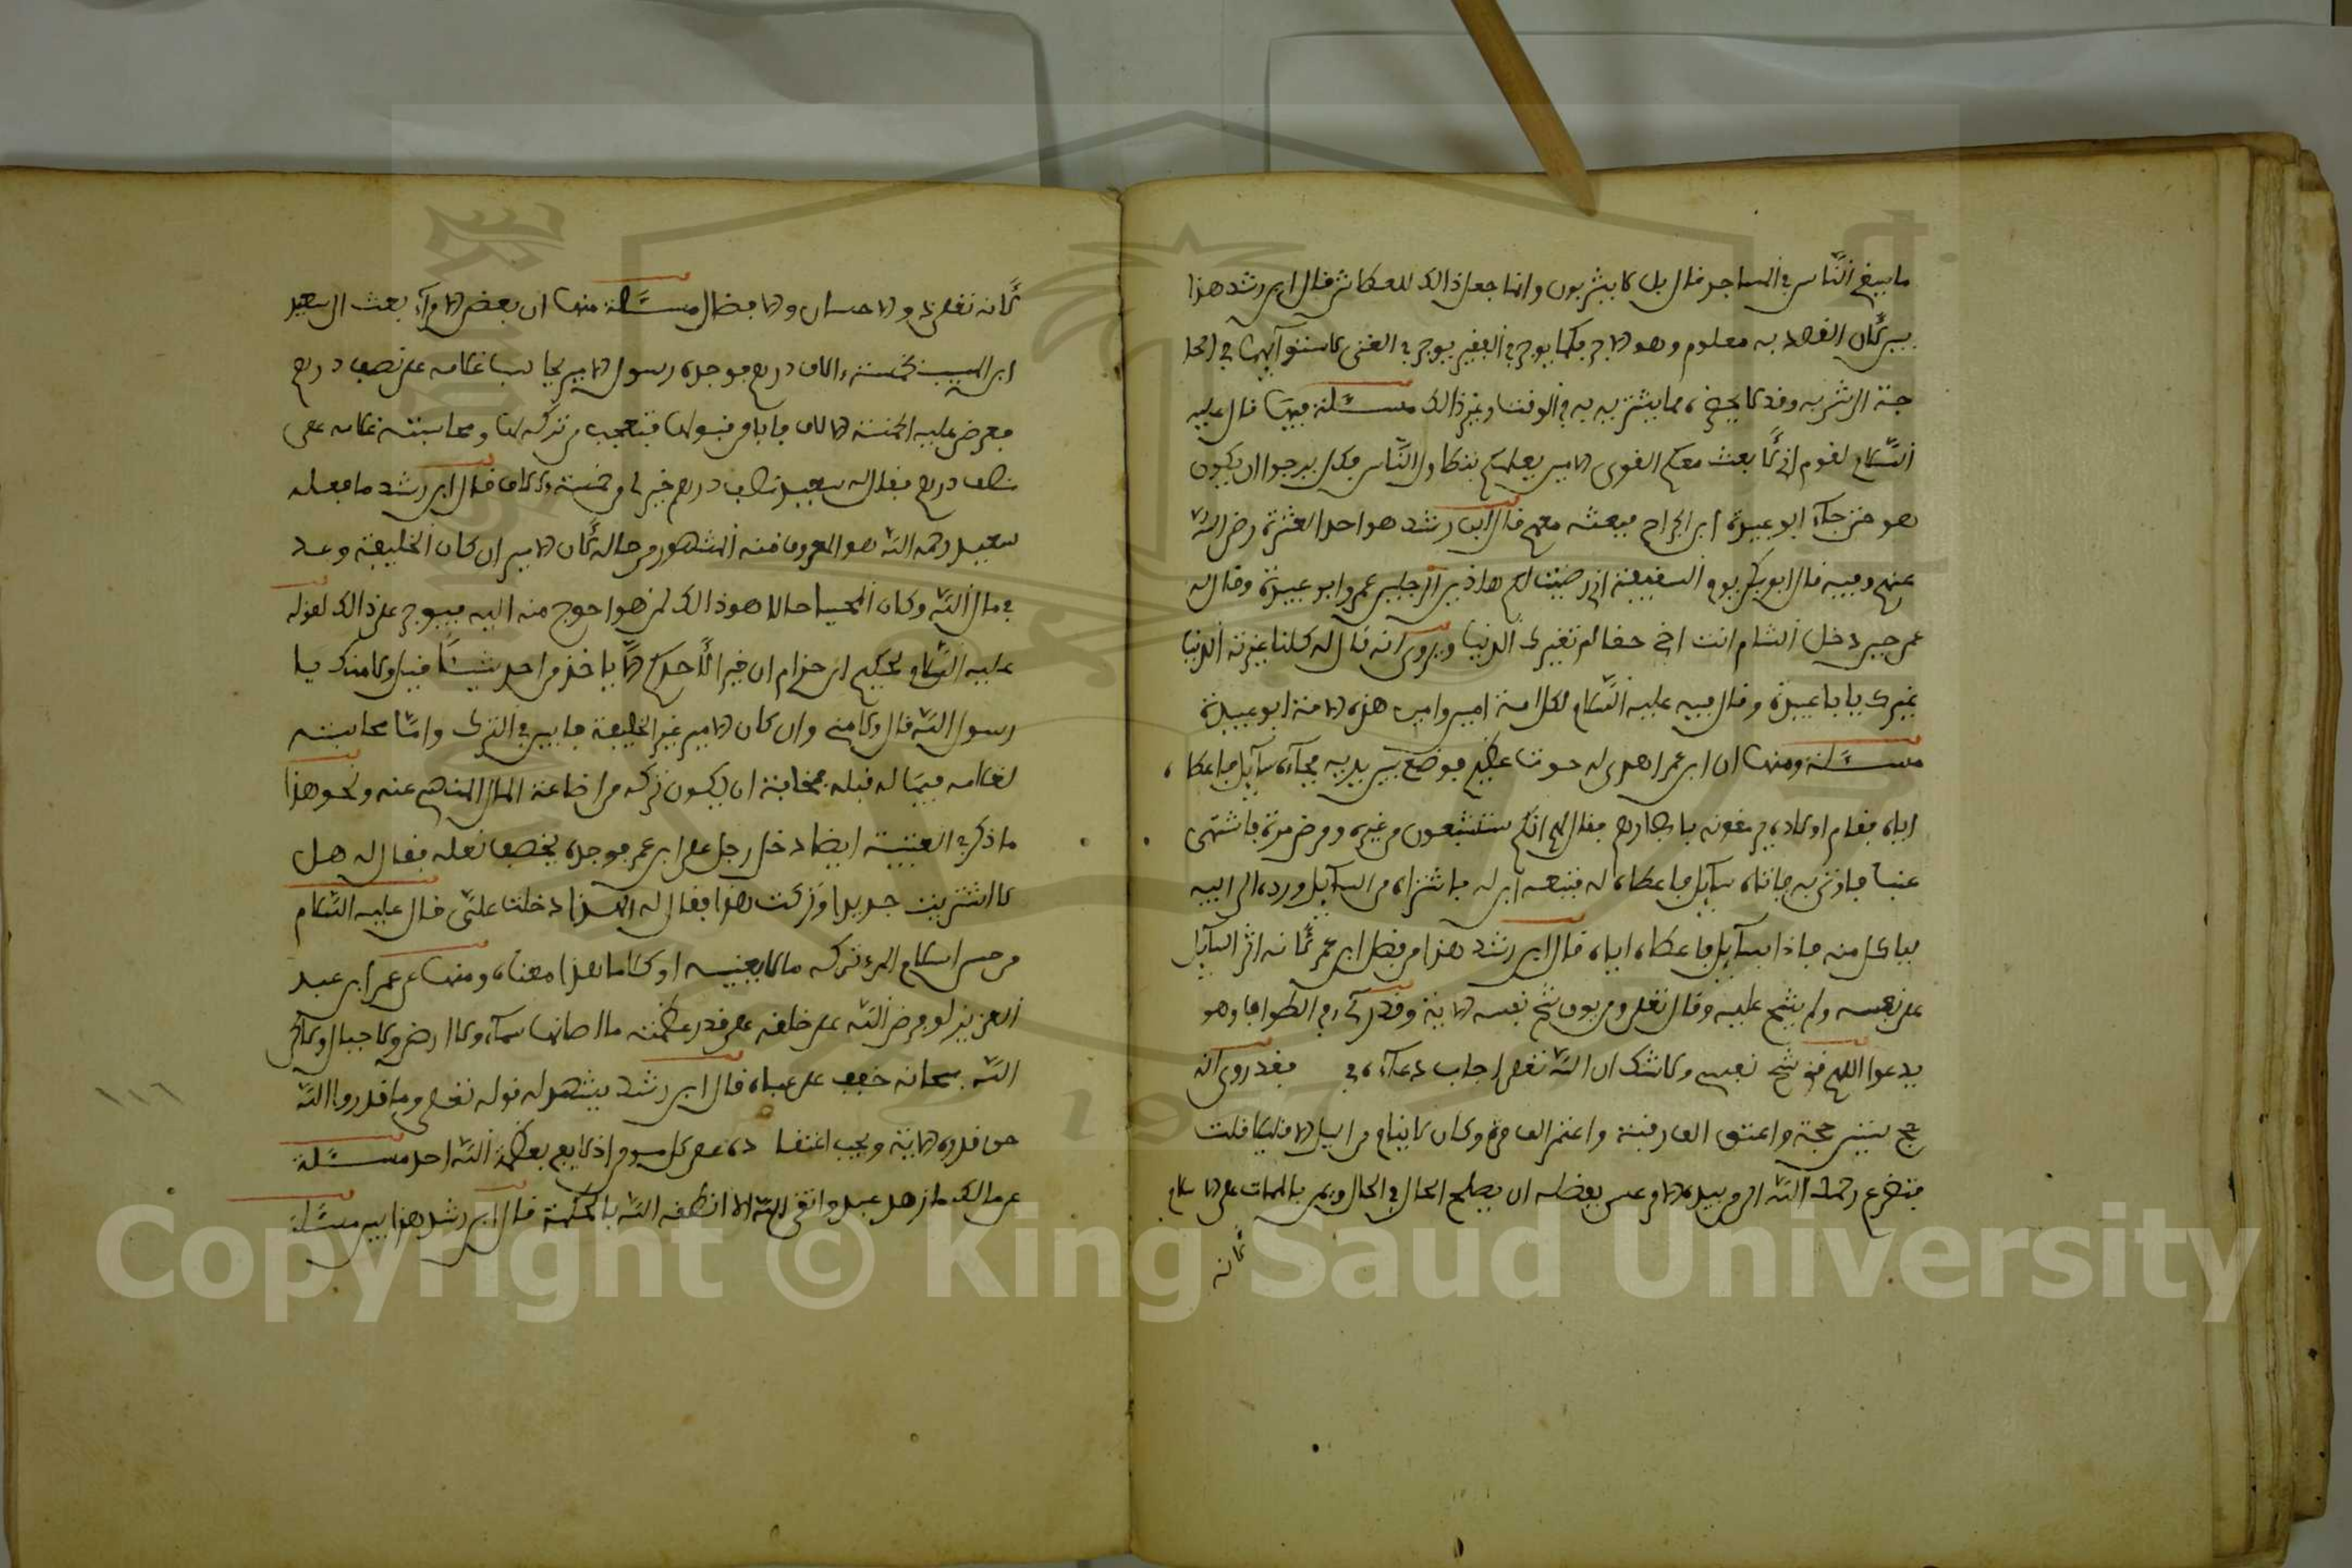 ما يسقى الناس في المساجد قال بل لا يشربون وانما جعل ذالك للعطاش قال ابن رشد هذا
بين لان القصد به معلوم وهو الاجر فكما يوجر في الفقير يوجر في الغني لاستوائهما في الحا
جة الى شربه وقد لا يجد ما يشتريه به في الوقت وغير ذالك مسئلة فيها قال عليه
السلام لقوم اني لابعث معكم القوي الامين يعلمكم فتطاول الناس فكل يرجوا ان يكون
هو حتى جاء ابو عبيدة ابن الجراح فبعثه معهم قال ابن رشد هو احد العشرة رضي الله
عنهم وفيه قال ابو بكر يوم السقيفة اني رضيت لكم هاذين الرجلين عمر وابو عبيدة وقال له
عمر حين دخل الشام انت اخي حقا لم تغيرك الدنيا ويروى انه قال له كلنا غيرته الدنيا
غيرك يا با عبيدة وقال فيه عليه السلام لكل امة امين وامين هذه الامة ابو عبيدة
مسئلة ومنها ان ابن عمر اهدي له حوت عظيم فوضع بين يديه فجاءه سايل فاعطا ه
اياه فقام اولاده يرمقونه بابصارهم فقال لهم انكم ستشبعون من غيره ومرض مرة فاشتهى
عنبا فاوتي به فاتاه سايل فاعطاه له فتبعه ابن له فاشتراه من السايل ورده الى ابيه
لياكل منه فاذا بسايل فاعطاه اياه قال ابن رشد هذا من فضل ابن عمر لانه اثر السايل
على نفسه ولم يشح عليه وقال تعلى ومن يوق شح نفسه الاية وقد كان في الطواف وهو
يدعوا اللهم قني شح نفسي ولا شك ان الله تعلى اجاب دعاءه في فقد روي انه
حج ستين حجة واعتق الف رقبة واعتمر الف عمرة وكان لا ينام من اليل الا قليلا قلت
فتضرع رحمك الله الى من بيده الامر وعسى بفضله ان يصلح الحال في الحال ويمن بالممات على الاسلام
لانه
لانه تعلى ذو الاحسان والافضال مسئلة منها ان بعض الامراء بعث الى سعيد
ابن المسيب بخمسة ءالاف درهم فوجده رسول الامير يحاسب غلامه على نصف درهم
فعرض عليه الخمسة الالاف فابا من قبولها فتعجب من تركه لها ومحاسبته غلامه على
نصف درهم فقال له سعيد نصف درهم خير لي من خمسة ءالاف قال ابن رشد ما فعله
سعيد رحمه الله هو المعروف منه المشهور من حاله لان الامير ان كان الخليفة وعد
في مال الله وكان المجبا حلالا هو ذالك لمن هو احوج منه اليه فيوجر على ذالك لقوله
عليه السلام لحكيم ابن حزام ان خيرا لاحدكم الا ياخذ من احد شيئا قيل ولا منك يا
رسول الله قال ولا مني وان كان الامير غير الخليفة فابين في الترك واما محاسبته
لغلامه فيما له قبله فمخافة ان يكون تركه من اضاعة المال المنهي عنه ونحو هذا
ما ذكر في العتبية ايضا دخل رجل على ابن عمر فوجده يخصف نعله فقال له هل
لا اشتريت جديدا وتركت هذا فقال له الهذا دخلت علي قال عليه السلام
من حسن اسلام المرء تركه ما لا يعنيه او كلاما هذا معناه ومنها عن عمر ابن عبد
العزيز لو فرض الله على خلقه على قدر عظمته ما اطاقتها سماء ولا ارض ولا جبال ولاكن
الله سبحانه خفف على عباده قال ابن رشد يشهد له قوله تعلى وما قدروا الله
حق قدره الاية ويجب اعتقا ده على كل مسلم اذ لا يعلم بعظمة الله احد مسئلة
عن مالك ما زهد عبد واتقى الله الا انطقه الله بالحكمة قال ابن رشد هذا بين مسئلة
١١٦
Copyright © King Saud University
1957